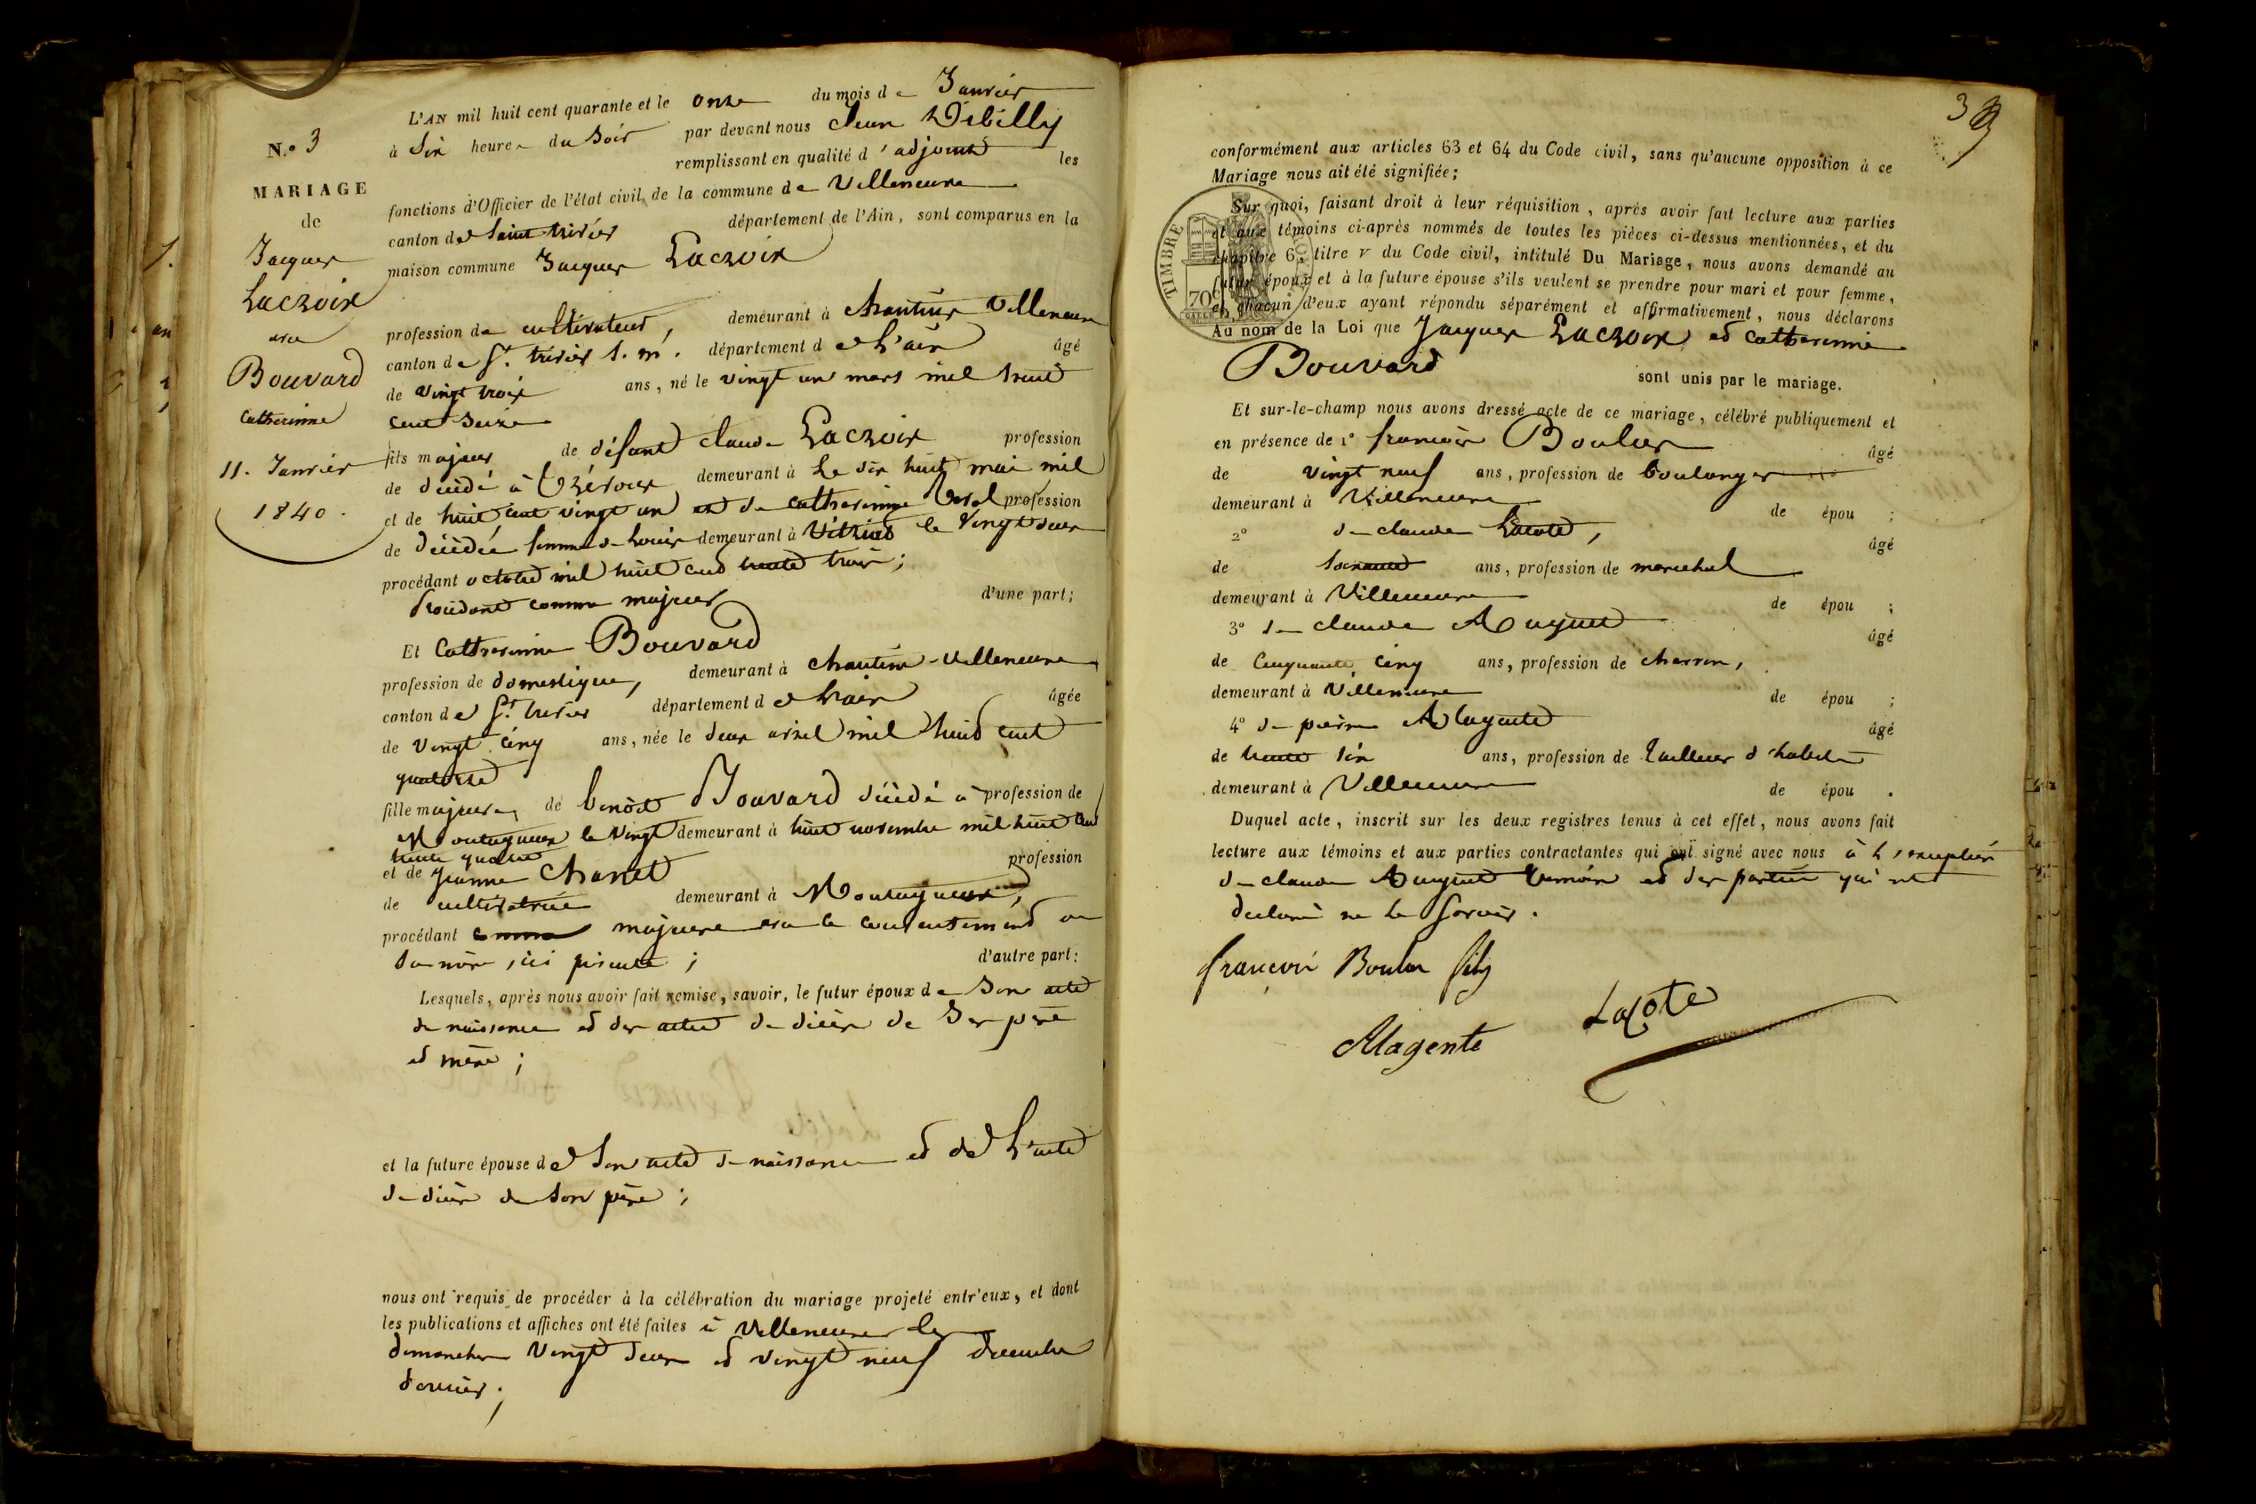 N.o 3
MARIAGE
de
Jacques
Lacroix
avec
Bouvard
Catherinne
11. Janvier
1840.
L'AN mil huit cent quarante et le onze du mois de Janvier
à six heures du soir par devant nous Jean Débilly
remplissant en qualité d'adjoint les
fonctions d'Officier de l'état civil de la commune de Villeneuve
canton de Saint trivier département de l'Ain, sont comparus en la
maison commune Jacques Lacroix
profession de cultivateur, demeurant à chanteins Villeneuve
canton de St. trivier s. m. département de L'ain âgé
de vingt trois ans, né le vingt un mars mil huit
cent seize
fils majeur de défunt claude Lacroix profession
de décédé à demeurant à Le dix huit mai mil
et de huit cent vingt un et de catherinne profession
de décédée femme de Louis demeurant à le vingt deux
procédant octobre mil huit cent trente trois;
Procédant comme majeur d'une part;
Et Catherinne Bouvard
profession de domestique, demeurant à chanteins-Villeneuve
canton de St. trivier département de L'ain âgée
de vingt cinq ans, née le deux avril mil huit cent
quatorze
fille majeure, de benoit Bouvard décédé à profession de
Montagneux le vingt demeurant à huit novembre mil huit cent
trente quatre
et de Jeanne Chanet profession
de cultivatrice demeurant à Montagneux,
procédant comme majeure avec le consentement de
sa mère, ici présente; d'autre part:
Lesquels, après nous avoir fait remise, savoir, le futur époux de Son acte
de naissance et des actes de décès de Ses père
et mère;
et la future épouse de Son acte de naissance et de L'acte
de décès de Son père;
nous ont requis de procéder à la célébration du mariage projeté entr'eux, et dont
les publications et affiches ont été faites à Villeneuve les
dimanches vingt deux et vingt neuf décembre
dernier;
39
conformément aux articles 63 et 64 du Code civil, sans qu'aucune opposition à ce
Mariage nous ait été signifiée;
TIMBRE
70c
Sur quoi, faisant droit à leur réquisition, après avoir fait lecture aux parties
et aux témoins ci-après nommés de toutes les pièces ci-dessus mentionnées, et du
chapitre 6, titre v du Code civil, intitulé Du Mariage, nous avons demandé au
futur époux et à la future épouse s'ils veulent se prendre pour mari et pour femme,
et chacun d'eux ayant répondu séparément et affirmativement, nous déclarons
Au nom de la Loi que Jacques Lacroix et Catherinne
Bouvard sont unis par le mariage.
Et sur-le-champ nous avons dressé acte de ce mariage, célébré publiquement et
en présence de 1o françois Boulier âgé
de vingt neuf ans, profession de boulanger
demeurant à Villeneuve de épou ;
2o de claude Lacote, âgé
de soixante ans, profession de marechal
demeurant à Villeneuve de épou ;
3o de claude Auguet âgé
de Cinquante cinq ans, profession de charron,
demeurant à Villeneuve de épou ;
4o de pierre Alagente âgé
de trente six ans, profession de Tailleur d'habits
demeurant à Villeneuve de épou .
Duquel acte, inscrit sur les deux registres tenus à cet effet, nous avons fait
lecture aux témoins et aux parties contractantes qui ont signé avec nous à L'exception
de claude Auguet témoin et des parties qui ont
déclaré ne le savoir.
françois Boulier fils
Lacote
Alagente